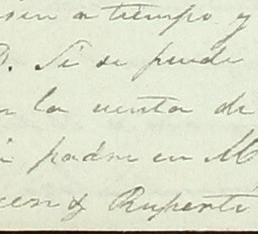 a tiempo y
Si se puede
la venta de
padre en M
& Ruperti